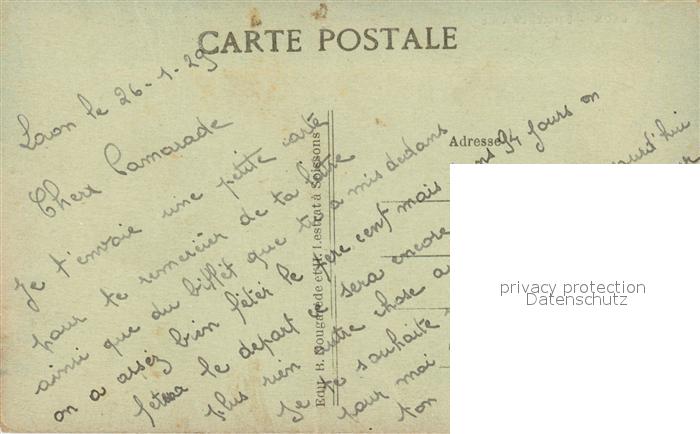 CARTE POSTALE
Laon le 26-1-29
Cher Camarade
Je t'envoie une petite carte
pour te remercier de ta lettre
ainsi que du billet que tu a mis dedans
on a assez bien fêter le père cent mais dans 94 jours on
fetera le depart sera encore
plus rien autre chose a aujourd'hui
Je te souhaite
pour moi
ton
Adresse
Edit. B. Nougarède et H. Lestrat à Soissons
privacy protection
Datenschutz